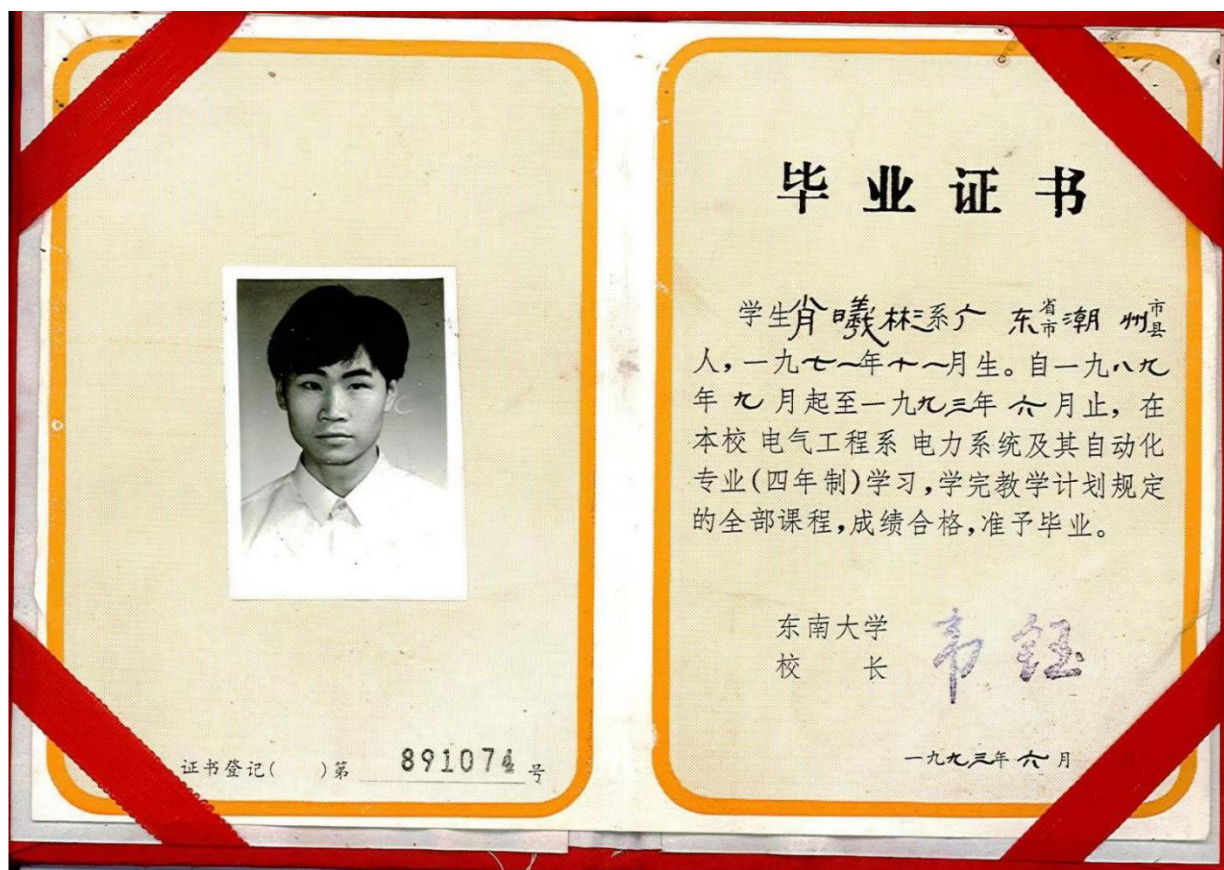 证书登记(　　)第 891074 号
毕业证书
学生肖曦林系广东省市潮州市县
人,一九七一年十一月生。自一九八九
年九月起至一九九三年六月止,在
本校 电气工程系 电力系统及其自动化
专业(四年制)学习,学完教学计划规定
的全部课程,成绩合格,准予毕业。
东南大学
校　　长 韦钰
一九九三年六月